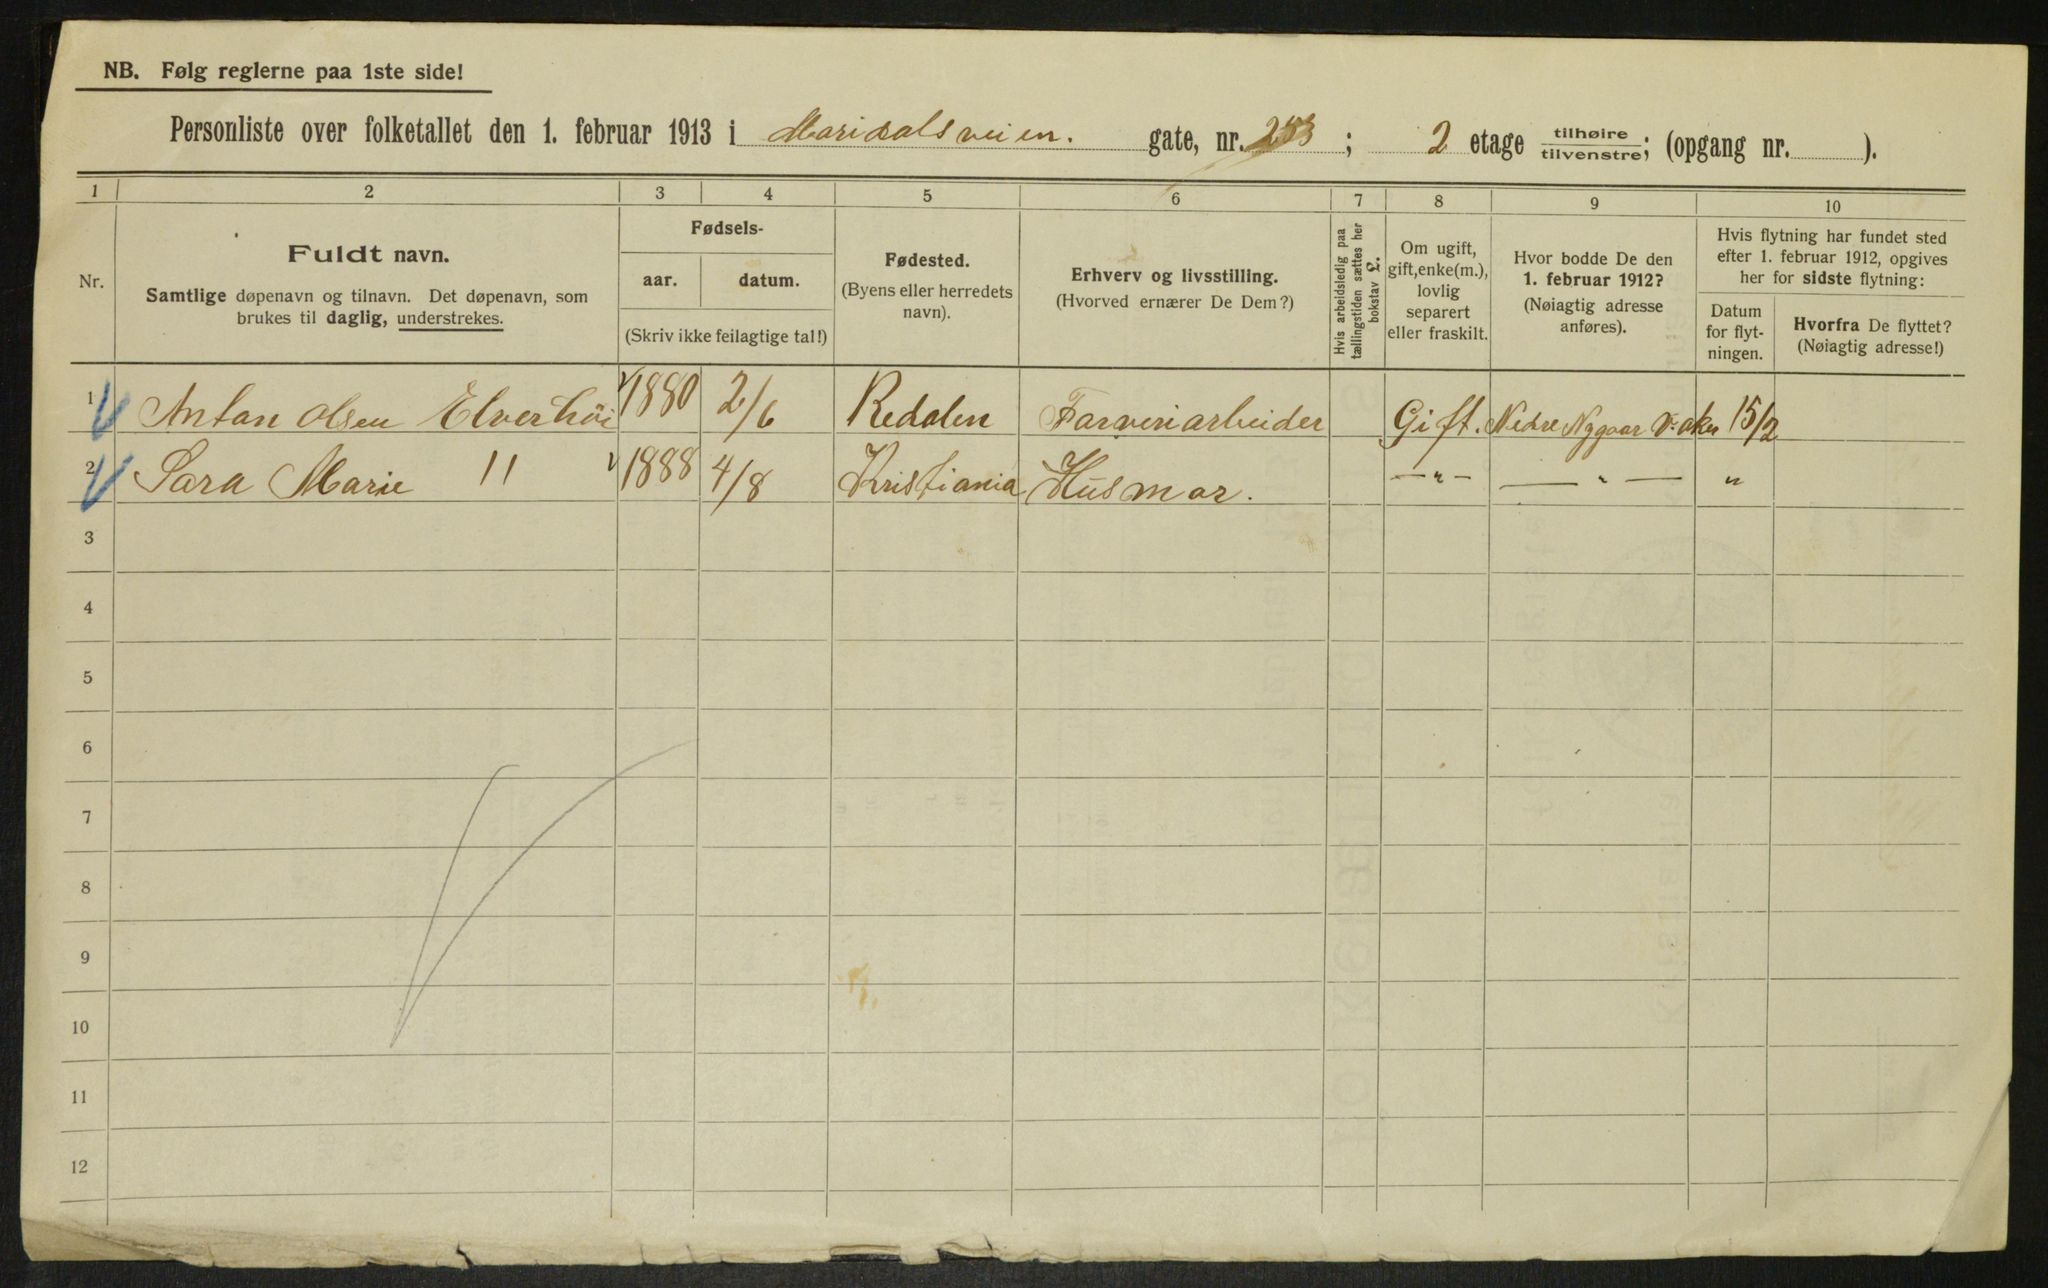 NB. Følg reglerne paa 1ste side!
Personliste over folketallet den 1. februar 1913 i Maridalsveien. gate, nr. 253; 2 etage tilhøire/tilvenstre; (opgang nr. ).
1 2 3 4 5 6 7 8 9 10
Nr.
Fuldt navn.
Samtlige døpenavn og tilnavn. Det døpenavn, som
brukes til daglig, understrekes.
Fødsels-
aar. datum.
(Skriv ikke feilagtige tal!)
Fødested.
(Byens eller herredets
navn).
Erhverv og livsstilling.
(Hvorved ernærer De Dem?)
Hvis arbeidsledig paa
tællingstiden sættes her
bokstav £.
Om ugift,
gift, enke(m.),
lovlig
separert
eller fraskilt.
Hvor bodde De den
1. februar 1912?
(Nøiagtig adresse
anføres).
Hvis flytning har fundet sted
efter 1. februar 1912, opgives
her for sidste flytning:
Datum
for flyt-
ningen.
Hvorfra De flyttet?
(Nøiagtig adresse!)
1 Anton Olsen Elverhöi 1880 2/6 Redalen Farveriarbeider Gift. Nedre Nygaar V. aker 15/2
2 Sara Marie " 1888 4/8 Kristiania Husmor. —„— —„— „
3
4
5
6
7
8
9
10
11
12